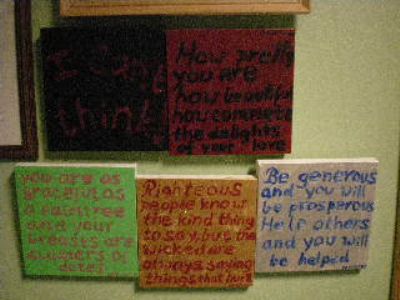 I cant
think
How pretty
you are
how beautiful
how complete
the delights
of your love
you are as
graceful as
a palm tree
and your
breasts are
clusters of
dates
Righteous
people know
the kind thing
to say, but the
wicked are
always saying
things that hurt
Be generous
and you will
be prosperous
Help others
and you will
be helped